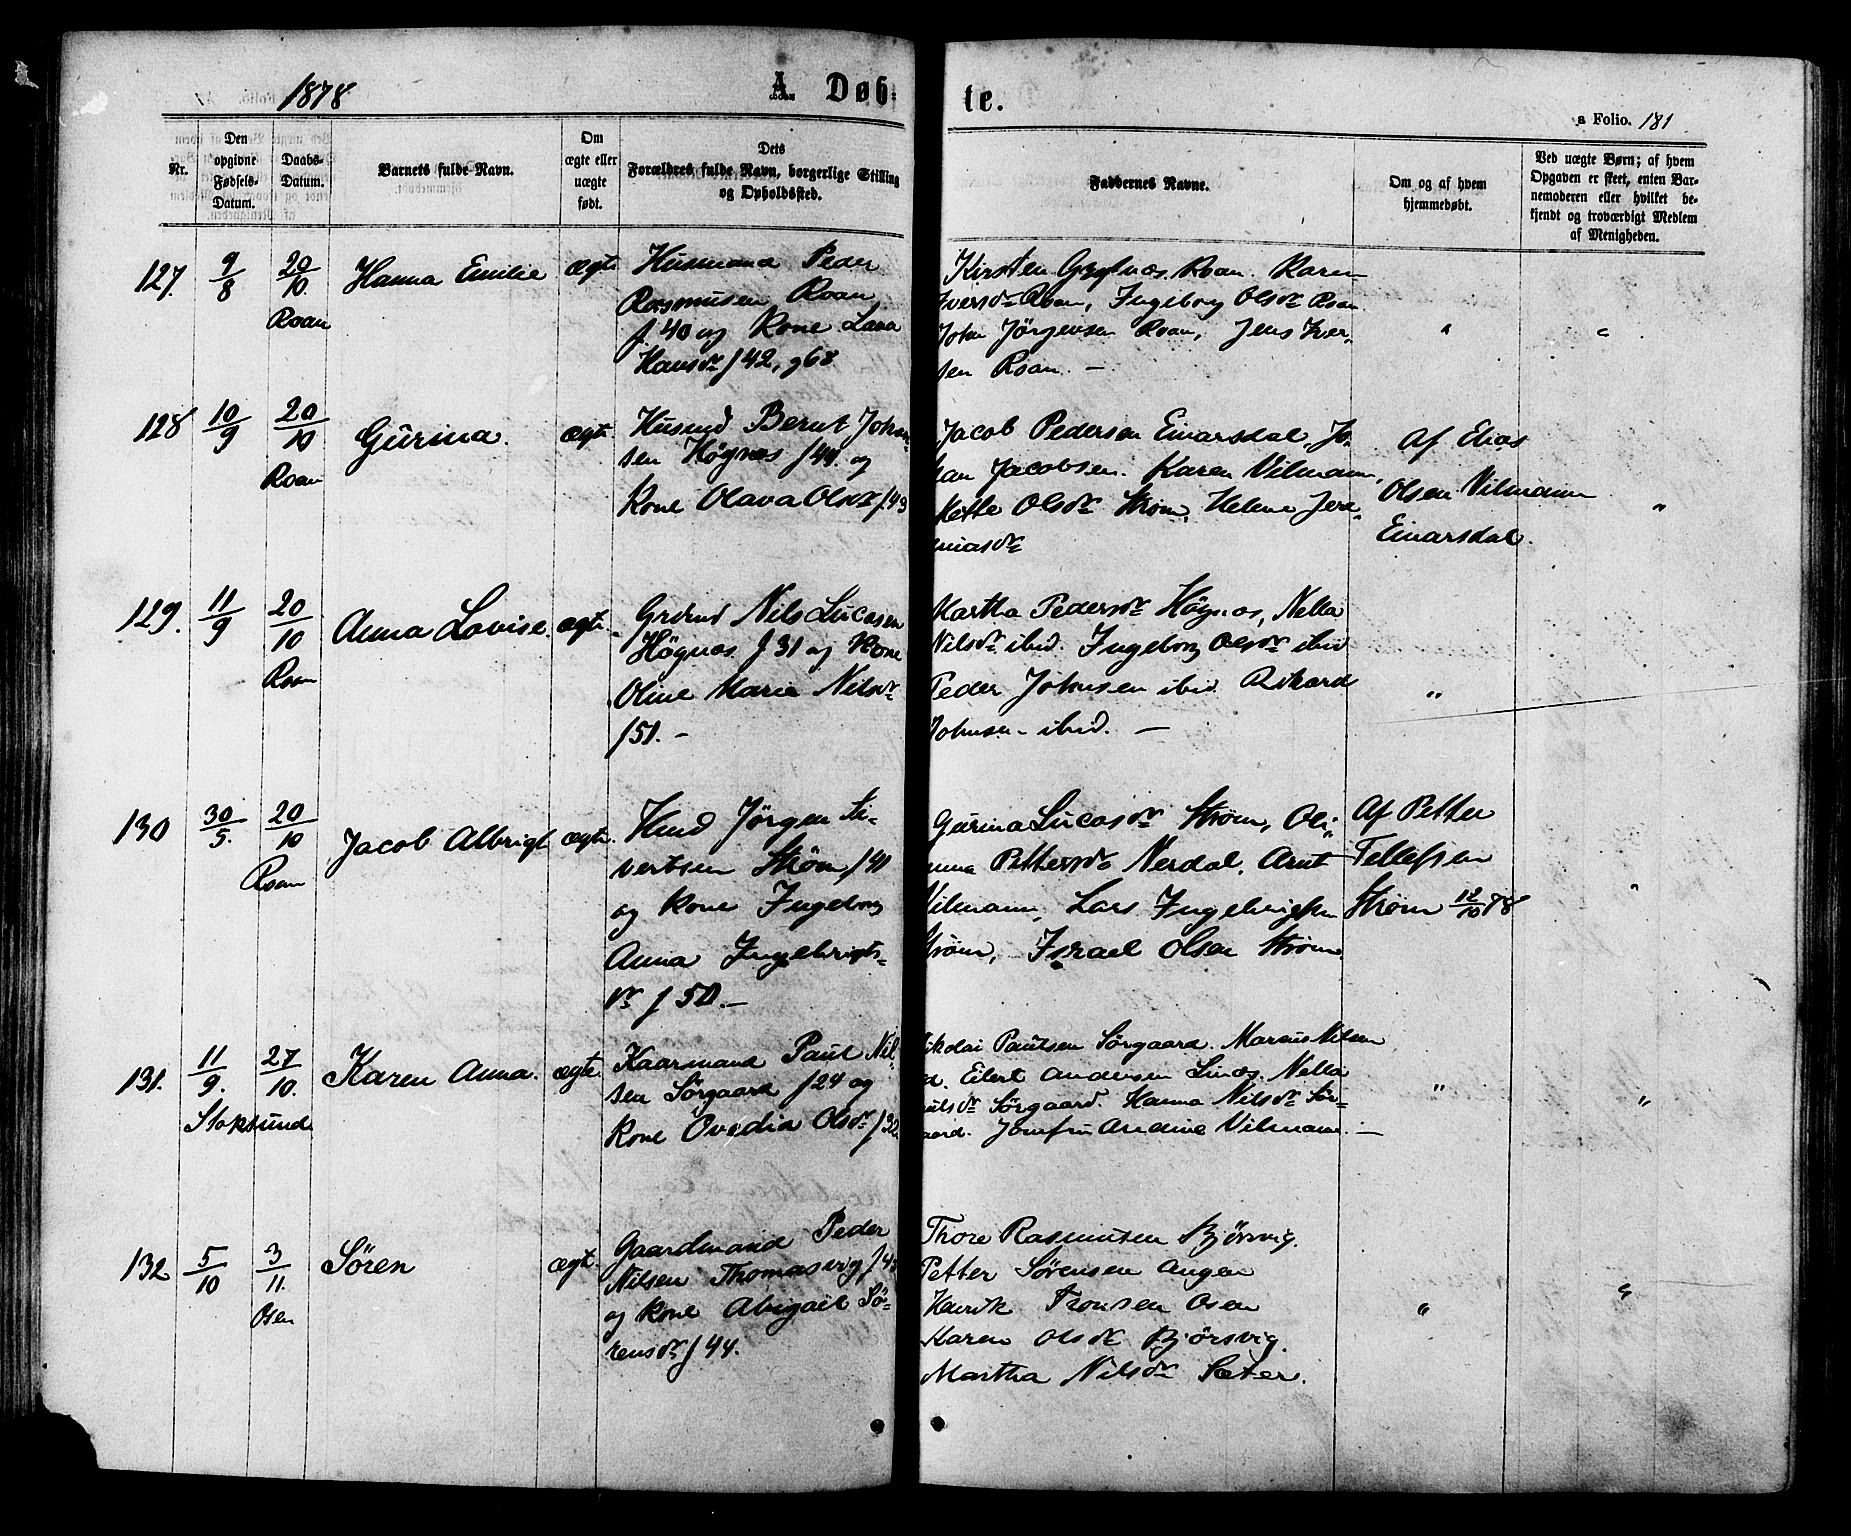 1878
A. Døb-
te.
a Folio. 181
Nr.
Den opgivne Fødsels-Datum.
Daabs-Datum.
Barnets fulde Navn.
Om ægte eller uægte født.
Dets Forældres fulde Navn, borgerlige Stilling og Opholdssted.
Faddernes Navne.
Om og af hvem hjemmedøbt.
Ved uægte Børn; af hvem Opgaven er skeet, enten Barnemoderen eller hvilket bekjendt og troværdigt Medlem af Menigheden.
127. 9/8 20/10. Roan Hanna Emilie ægte
Husmand Peder
Rasmusen Roan
f. 40 og Kone Lava
Hansdr f 42, g 68
Kirsten Roan. Karen
Iversdr Roan, Ingeborg Olsdr Roan
John Jørgensen Roan, Jens Iver-
sen Roan. —
" "
128 10/9 20/10 Roan Gurina. ægte
Husmd Bernt Johan-
sen Høgnæs f 44. og
Kone Olava Olsdr f. 43
Jacob Pedersen Einarsdal, Jo-
han Jacobsen. Karen Vilmann,
Mette Olsdr Strøm, Helene Jere-
miasdr
Af Elias
Olsen Vilmann
Einarsdal.
"
129. 11/9 20/10 Roan Anna Lovise. ægte
Grdmd Nils Lucasen
Høgnæs f 31 og Kone
Oline Marie Nilsdr
f 51. -
Martha Pedersdr Høgnæs, Nella
Nilsdr ibid. Ingeborg Olsdr ibid
Peder Johnsen ibid. Rikard
Johnsen ibid. —
"
130 30/5. 20/10 Roan Jacob Albrigt ægte.
Hmd Jørgen Si-
vertsen Strøm f 41
og Kone Ingeborg
Anna Ingebrigts-
dr f 50. —
Gurina Lucasdr Strøm, Oli-
anna Pettersdr Nerdal, Arnt
Vilmann, Lars Ingebrigtsen
Strøm, Israel Olsen Strøm
Af Petter
Tellefsen
Strøm 12/10 78
"
131. 11/9. 27/10. Stoksund Karen Anna. ægte
Kaarmand Paul Nil-
sen Sørgaard f 24 og
Kone Ovedia Olsdr f 32
Nikolai Paulsen Sørgaard. Marcus Nilsen
Eilert Andersen Linæs. Nella
Paulsdr Sørgaard. Hanna Nilsdr Sør-
gaard. Jomfru Andrine Vilmann. —
" "
132 5/10 3/11. Osen Søren ægte.
Gaardmand Peder
Nilsen Thomasvig f 48
og Kone Abigael Sø-
rensdr f 44.
Thore Rasmusen Bjørsvig.
Petter Sørensen Angen
Henrik Tronsen Osen
Karen Olsdr Bjørsvig.
Martha Nilsdr Sæter.
" "